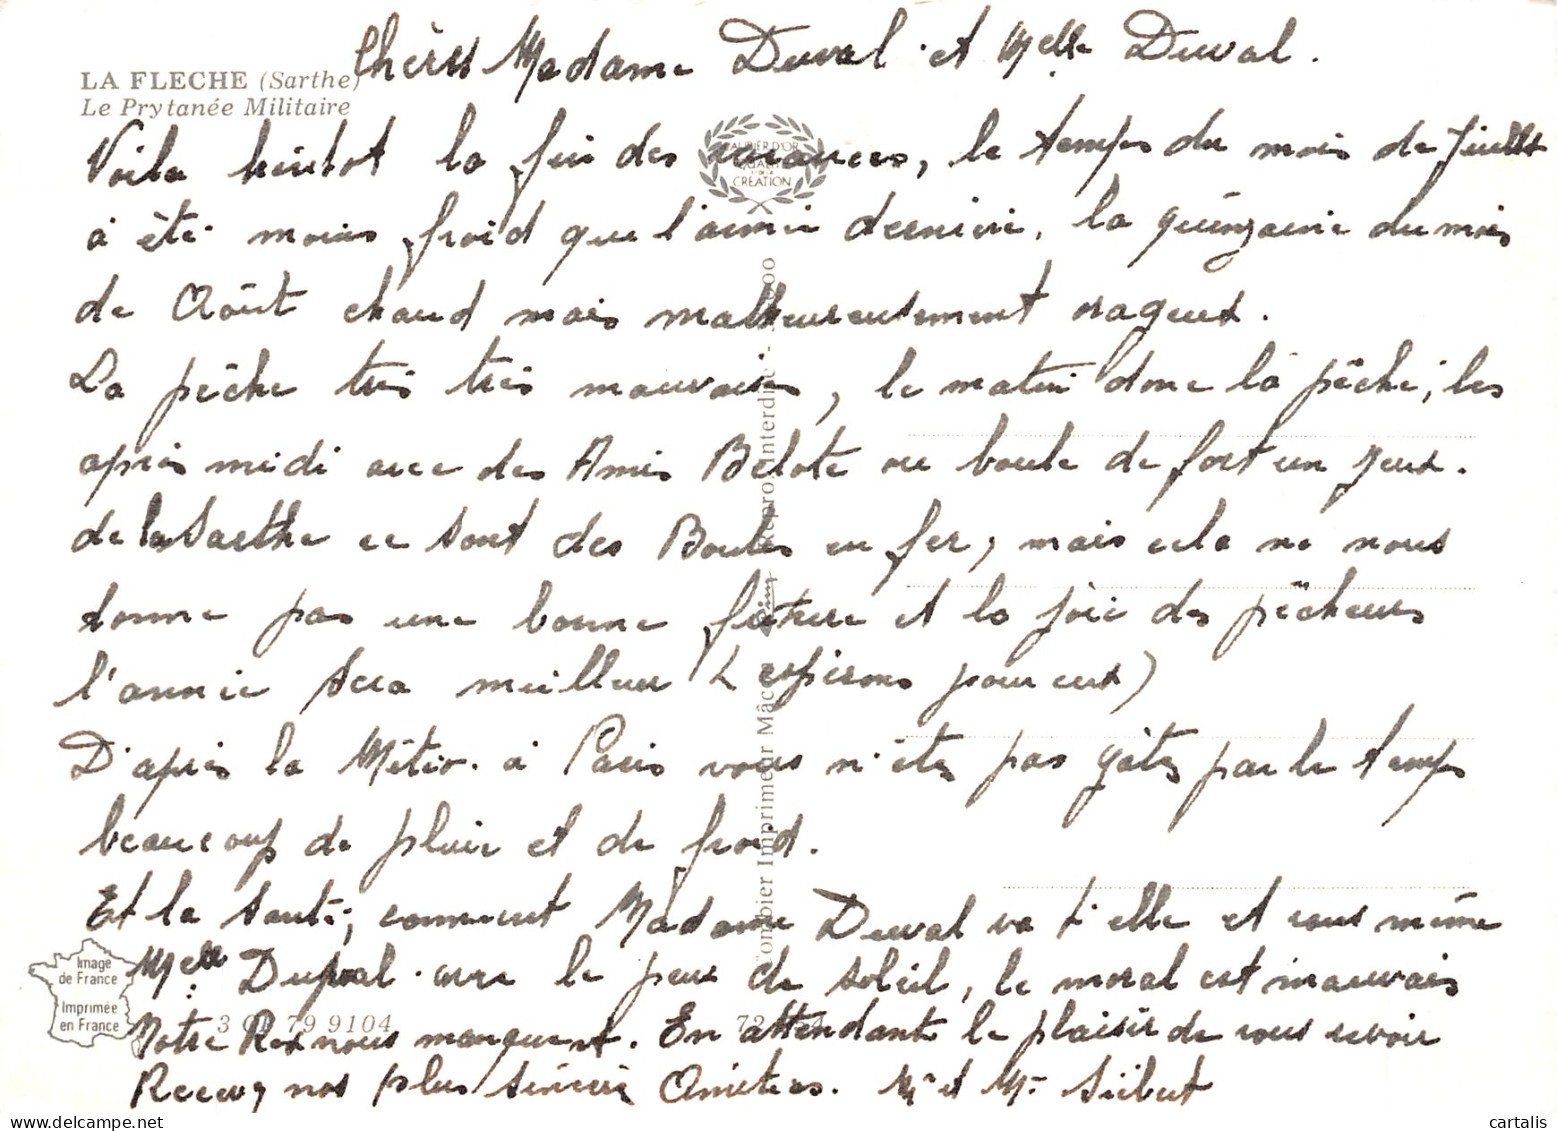 LA FLECHE (Sarthe)
Le Prytanée Militaire
Chères Madame Duval et Melle Duval.
Voila bientot la fin des vacances, le temps du mois de Juillet
à été moins froid que l'année dernière, la quinzaine du mois
de Août chaud mais malheureusement orageux.
La pêche très très mauvaise, le matin donc la pêche, les
après midi avec des Amis Belote ou boule de fort un jeux.
de la Sarthe ce sont des Boules en fer, mais cela ne nous
donne pas une bonne friture et la joie des pêcheurs
l'année sera meilleur (espérons pour eux)
D'après la Météo. à Paris vous n'étes pas gâtés par le temps
beaucoup de pluie et de froid.
Et la santé, comment Madame Duval va t'elle et vous même
Melle Duval. avec le peu de soleil, le moral est mauvais
Notre Rex nous manquent. En attendant le plaisir de vous revoir
Recevez nos plus sincère Amitiés. Mr et Me Siébert
LAURIER D'OR
QUALITÉ
CRÉATION
Combier Imprimeur Mâcon
Repro. interdite
Image
de France
Imprimée
en France
79 9104
72
© cartalis
www.delcampe.net